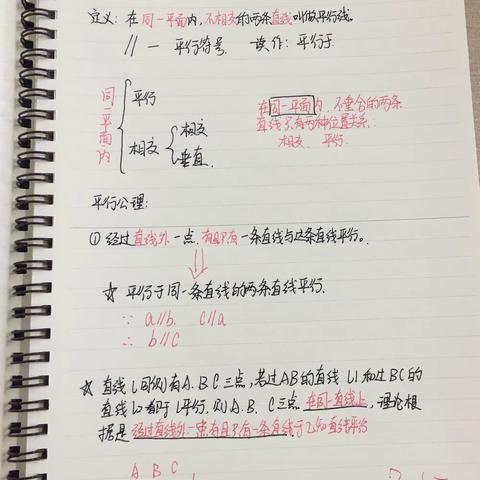 定义：在同一平面内，不相交的两条直线叫做平行线。
// 一 平行符号. 读作：平行于
同一平面内
平行
相交
相交
垂直.
在同一平面内，不重合的两条
直线只有两种位置关系.
相交、平行.
平行公理：
① 经过直线外一点，有且只有一条直线与这条直线平行。
☆ 平行于同一条直线的两条直线平行.
∵ a//b. c//a
∴ b//c
☆ 直线l同侧有A.B.C三点，若过AB的直线l1和过BC的
直线l2都于l平行.则A.B.C三点在同一直线上，理论根
据是经过直线外一点有且只有一条直线于已知直线平行
A B C